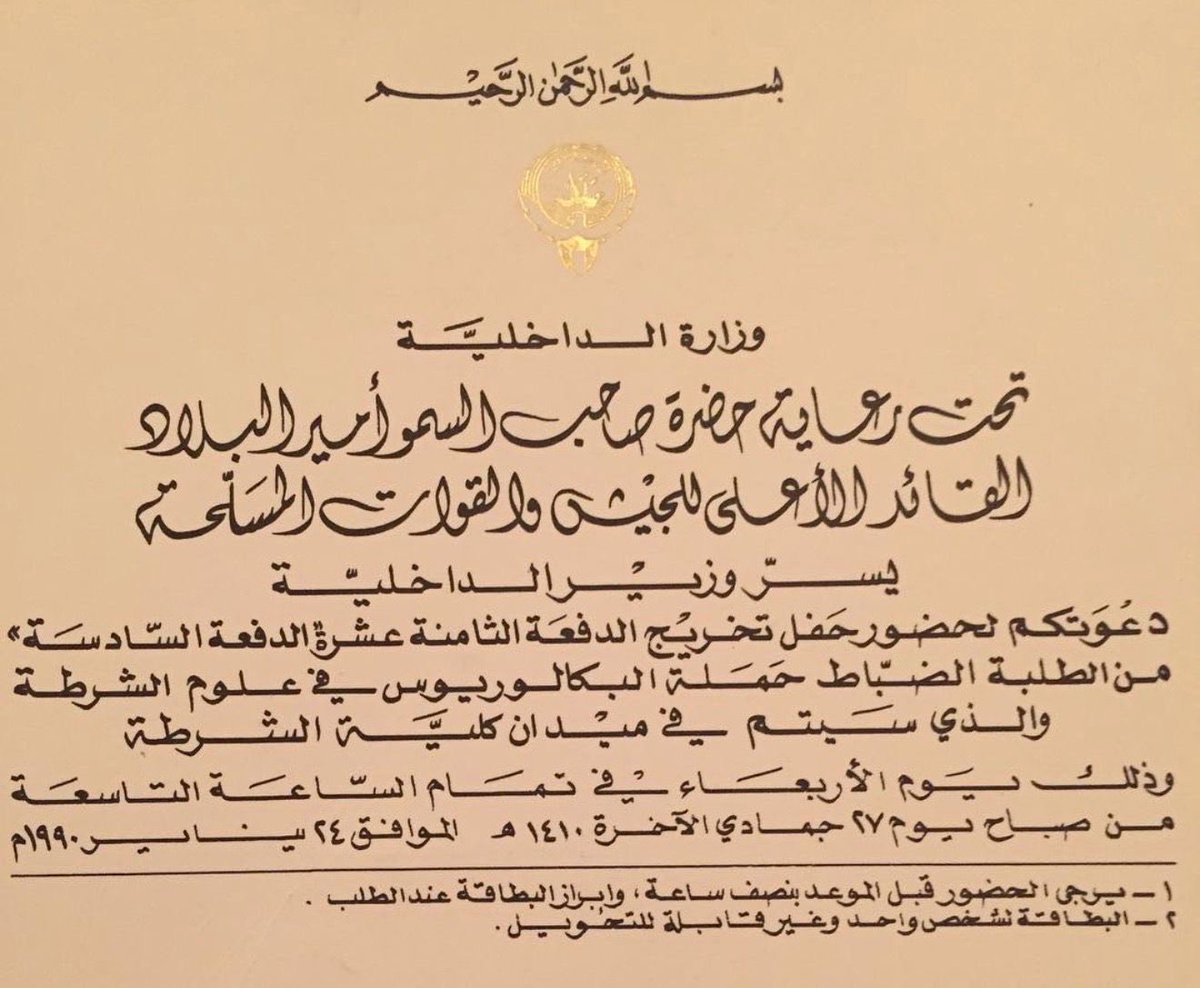 بسم الله الرحمن الرحيم
وزارة الداخليّة
تحت رعاية حضرة صاحب السمو أمير البلاد
القائد الأعلى للجيش والقوات المسلّحة
يسرّ وزير الداخليّة
دعوتكم لحضور حفل تخريج الدفعة الثامنة عشرة «الدفعة السّادسة»
من الطلبة الضبّاط حملة البكالوريوس في علوم الشرطة
والذي سيتم في ميدان كليّة الشرطة
وذلك يوم الأربعاء في تمام السّاعة التاسعة
من صباح يوم ٢٧ جمادي الآخرة ١٤١٠ هـ الموافق ٢٤ يناير ١٩٩٠م
١ - يرجى الحضور قبل الموعد بنصف ساعة ، وابراز البطاقة عند الطلب .
٢ - البطاقة لشخص واحد وغير قابلة للتحويل .